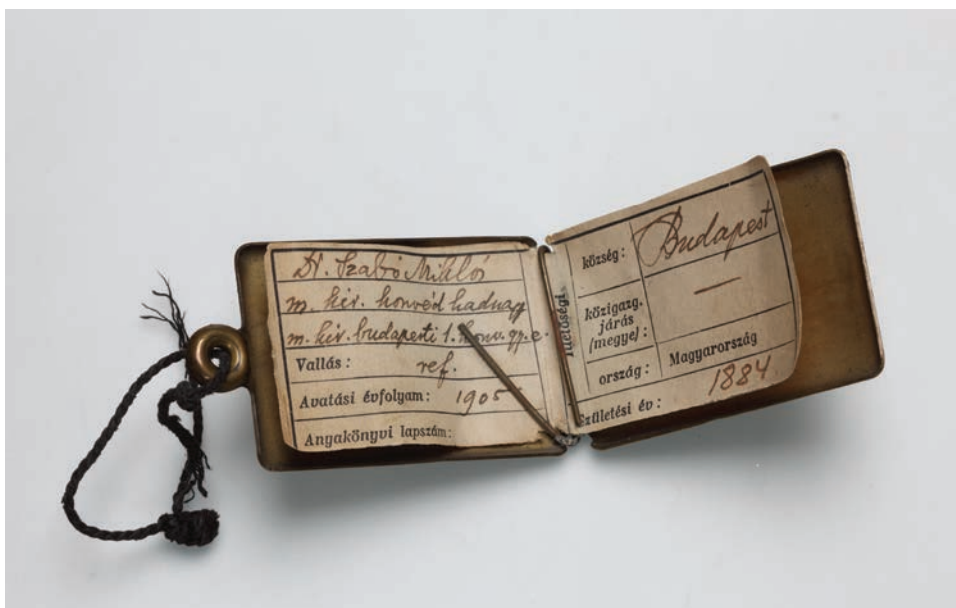 Dr. Szabó Miklós
m. kir. honvéd hadnagy
m. kir. budapesti 1. honv. gy. e.
Vallás: ref.
Avatási évfolyam: 1905
Anyakönyvi lapszám:
község: Budapest
közigazg.
járás
(megye): —
ország: Magyarország
Születési év: 1884